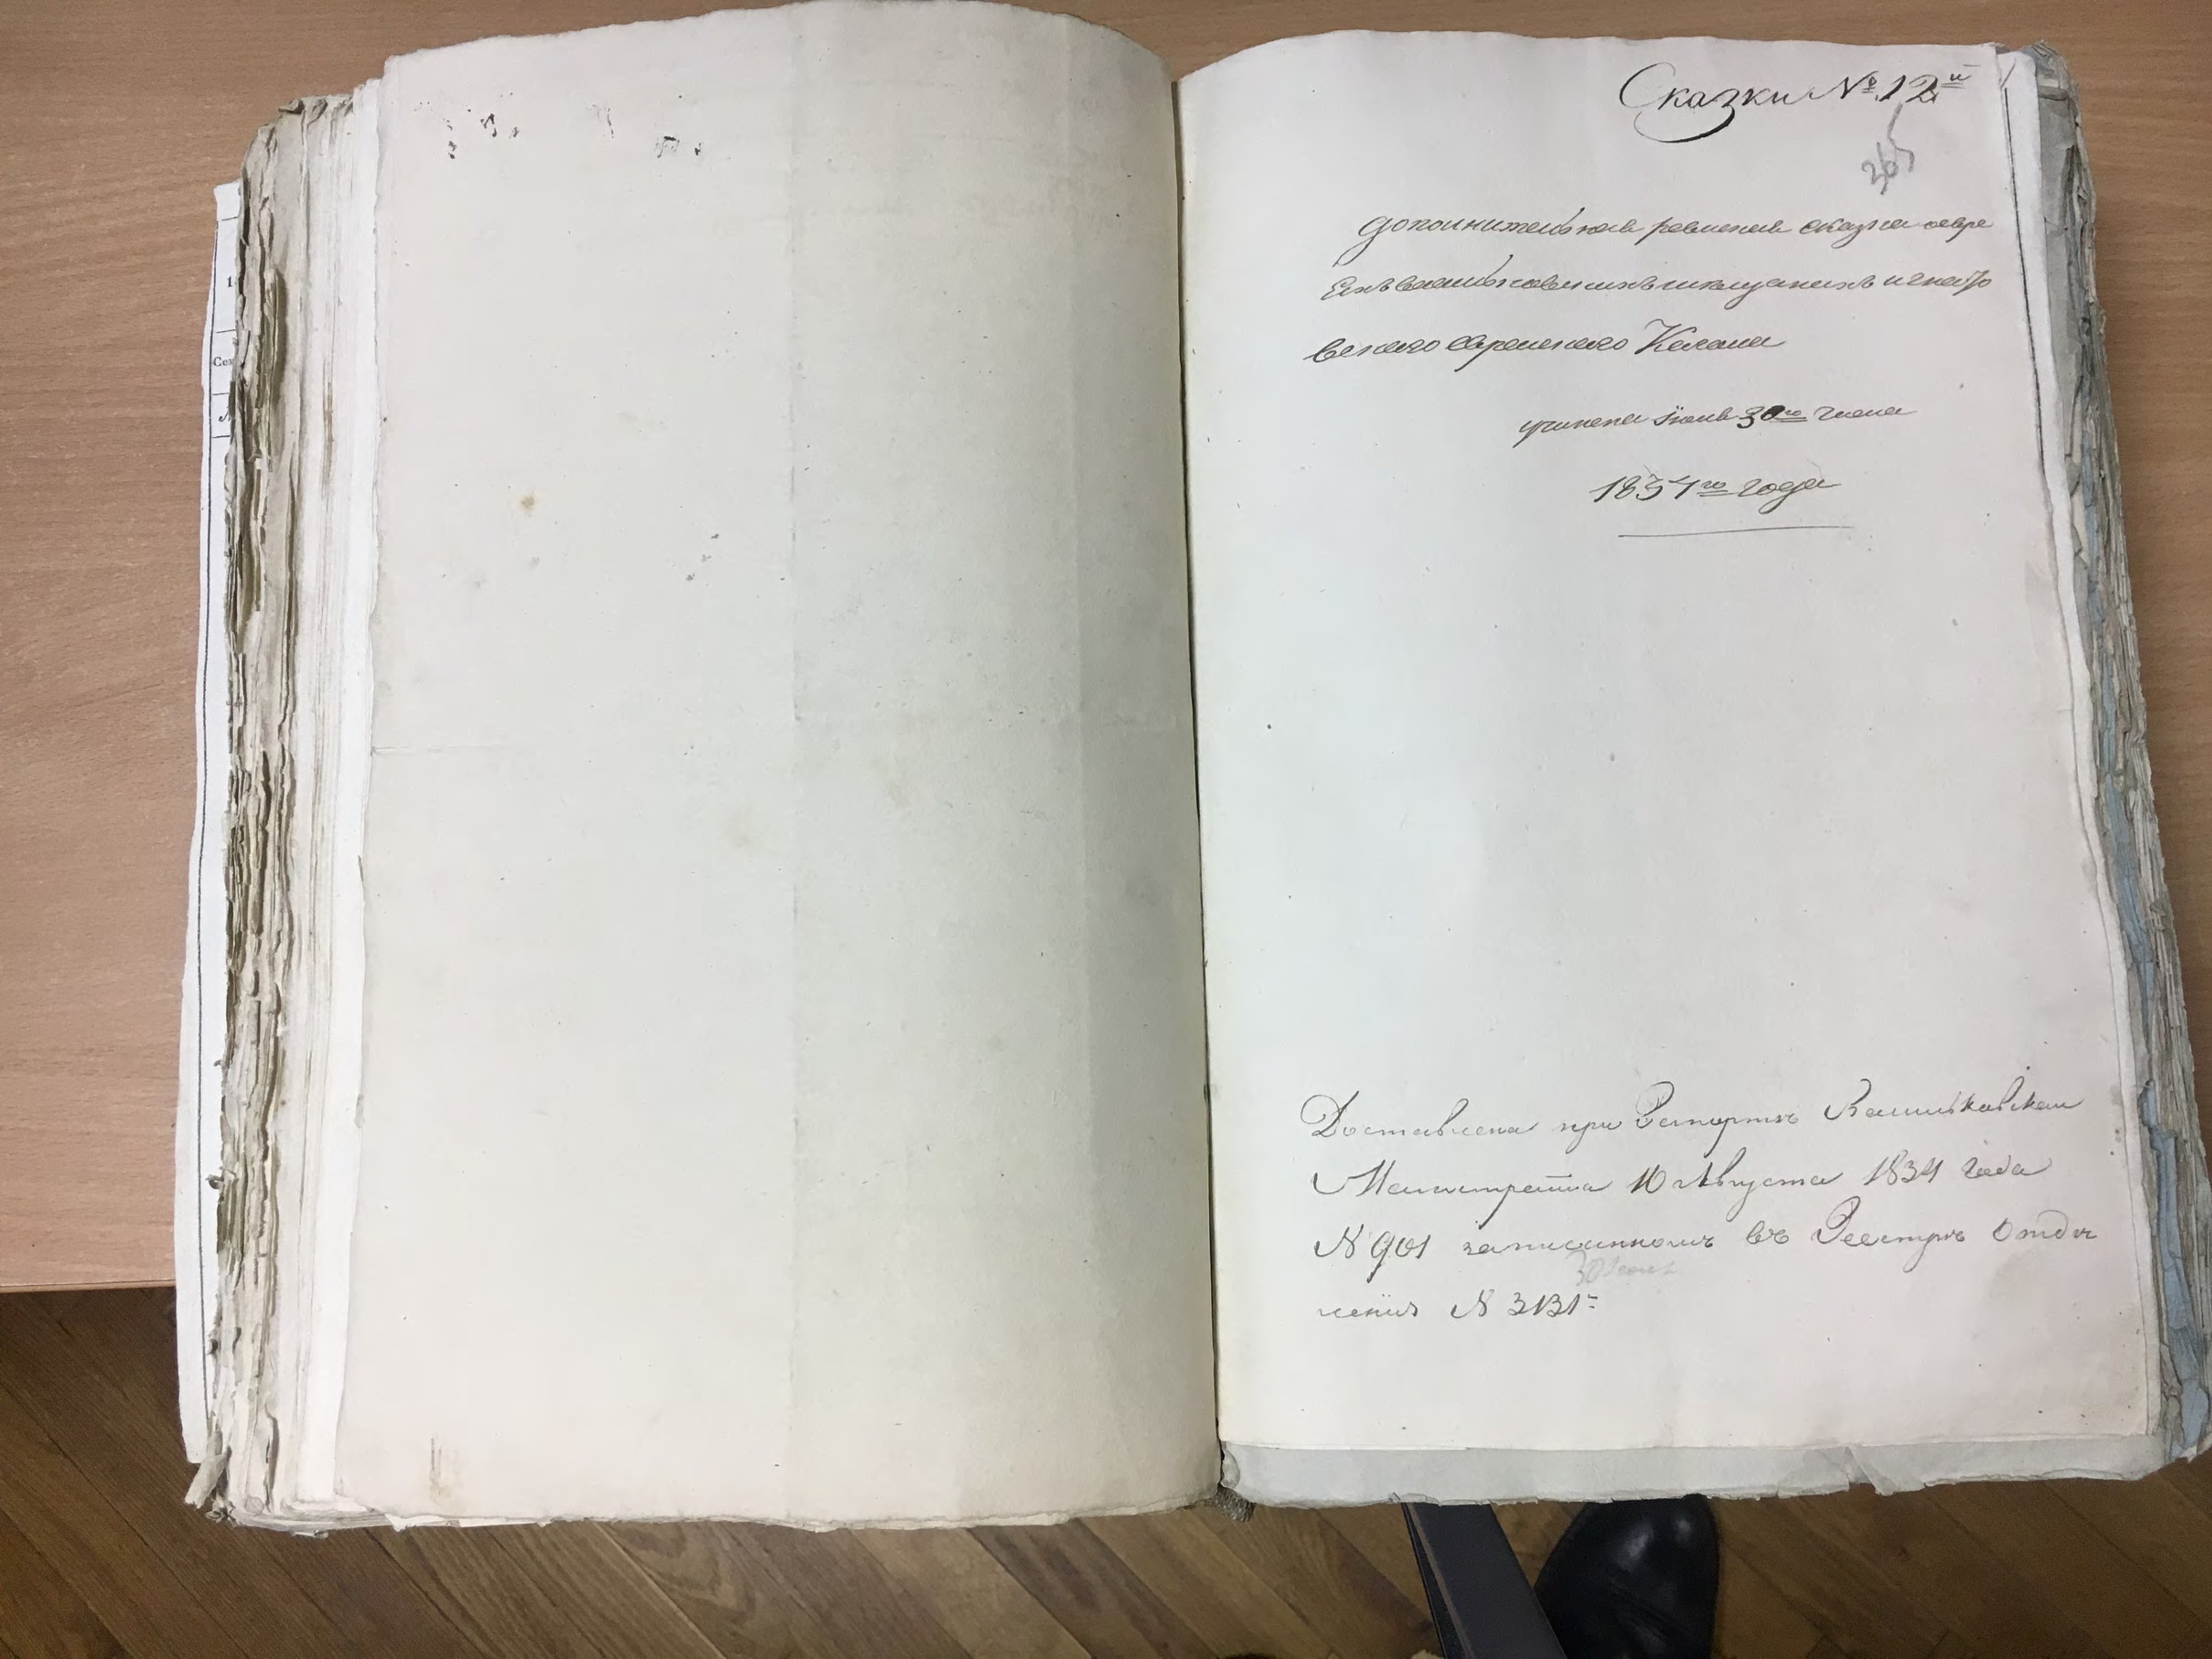 Сказки № 12й
365
дополнительная ревизкая сказка о евре
яхъ васильковскихъ мещанахъ игнато
вского Еврейского Кагала
учинена Июля 30го числа
1834го года
Доставлена при Рапортѣ Васильковскаго
Магистрата 10 Августа 1834 года
N 901 записанномъ въ Реестръ Отдѣ
ленія N 3131